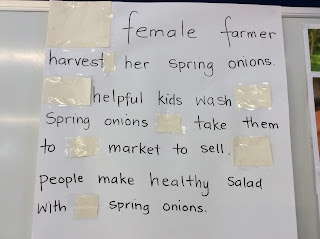 female farmer
harvest her spring onions.
helpful kids wash
Spring onions take them
to market to sell.
people make healthy salad
with spring onions.